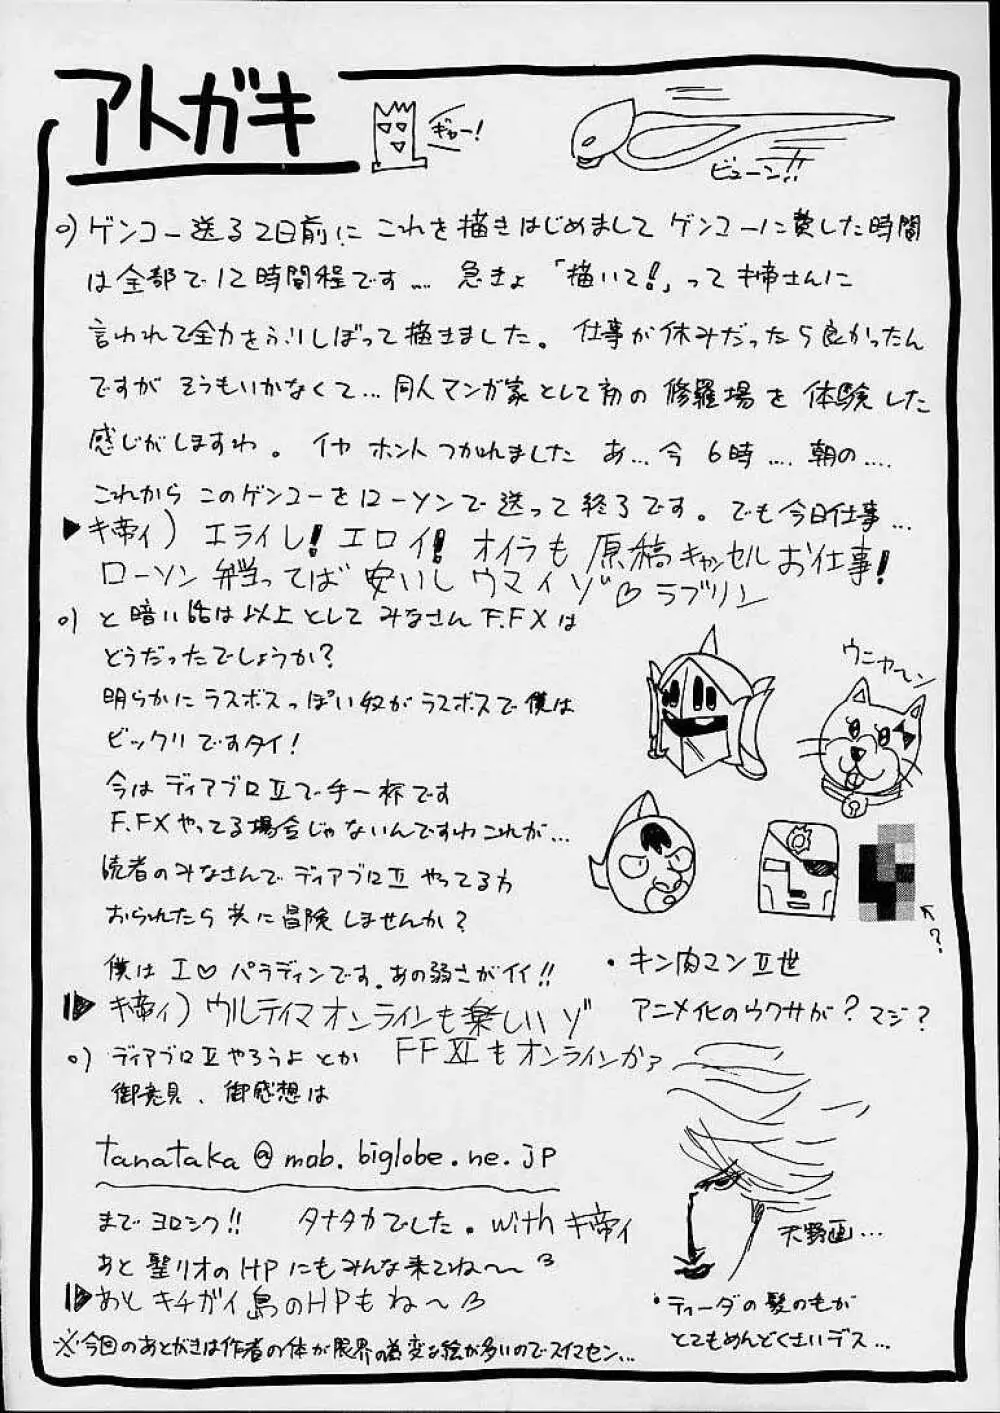 アトガキ
ギャー!
ビューン!!
o) ゲンコー送る2日前にこれを描きはじめましてゲンコーに費した時間
は全部で12時間程です… 急きょ「描いて!」って キ帝さんに
言われて全力をふりしぼって描きました。仕事が休みだったら良かったん
ですが そうもいかなくて…同人マンガ家として初の修羅場を体験した
感じがしますわ。イヤ ホント つかれました あ…今6時…. 朝の….
これからこのゲンコーをローソンで送って終了です。でも今日仕事…
▶キ帝ィ) エライし!エロイ!オイラも原稿キャンセルお仕事!
ローソン弁当ってば安いしウマイゾ♡ラブリン
o) と暗い話は以上としてみなさんF.FXは
どうだったでしょうか?
明らかにラスボスっぽい奴がラスボスで僕は
ビックリですタイ!
今はディアブロⅡで手一杯です
F.FXやってる場合じゃないんですわこれが…
読者のみなさんでディアブロⅡやってる方
おられたら共に冒険しませんか?
僕はエ♡パラディンです。あの弱さがイイ!!
▶キ帝ィ) ウルティマオンラインも楽しいゾ
o) ディアブロⅡやろうよとか FFXIもオンラインかァ
御意見、御感想は
tanataka@mob.biglobe.ne.jp
までヨロシク!! タナタカでした。with キ帝ィ
あと聖リオのHPにもみんな来てね〜〜
▶あと キチガイ島のHPもね〜
※今回のあとがきは作者の体が限界の為変な絵が多いのでスイマセン…
ウニャーン
?
・キン肉マンⅡ世
アニメ化のウワサが?マジ?
天野画…
・ティーダの髪の毛が
とてもめんどくさいデス…